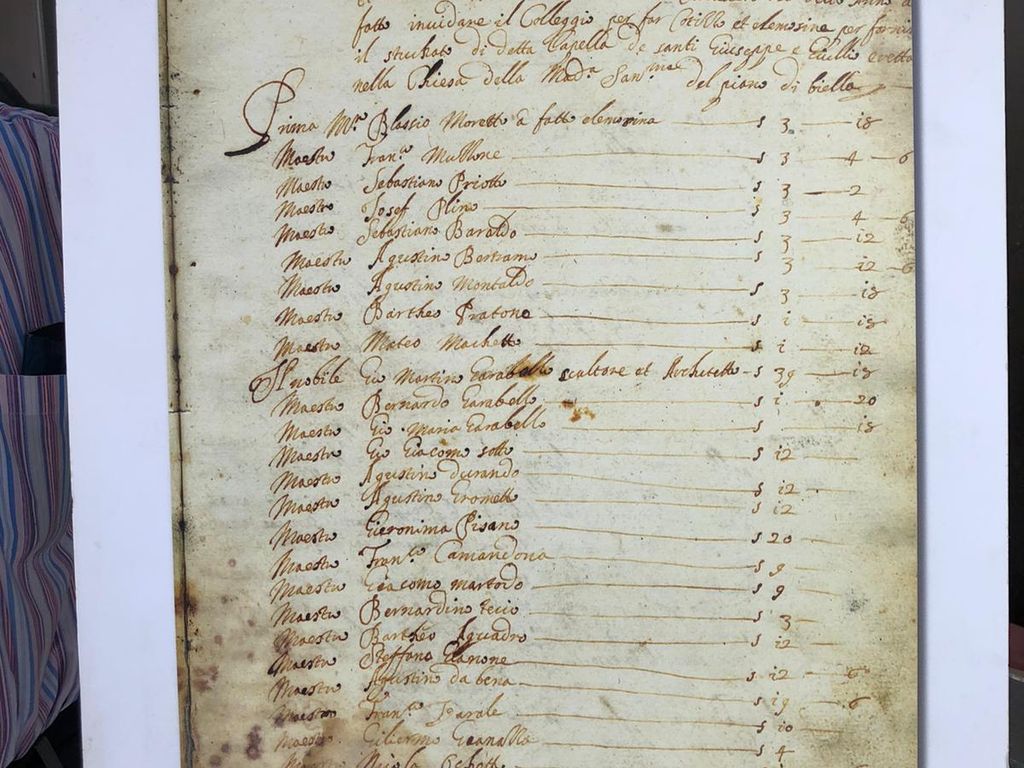 fatto invidare il Colleggio per far et elemosine per
il stuchato di detta Capella de santi Giuseppe e
nella Chiesa della Mad.a San.ma del piano di biella
Prima M.o Blassio Moretto a fatto elemosina s 3 18
Maestro Fran.co Mussone s 3 4 6
Maestro Sebastiano Priotto s 3 2
Maestro Josef Plino s 3 4 6
Maestro Sebastiano Baraldo s 3 12
Maestro Agustino Bertramo 3 12 6
Maestro Agustino Montaldo s 3 18
Maestro Bartheo Pratone s i 18
Maestro Mateo Machetto s i 12
Il nobile Gio Martino Garabello scultore et Architetto s 39 18
Maestro Bernardo Garabello s i 20
Maestro Gio Maria Garabello s 18
Maestro Gio Giacomo sotto s 12
Maestro Agustino durando s 12
Maestro Agustino Grometto s 12
Maestro Gieronimo Pisano s 20
Maestro Fran.co Camandona s 9
Maestro Giacomo martodo s 9
Maestro Bernardino s 3
Maestro Bartheo Aguadro s 12
Maestro Steffano Gianone s 12 6
Maestro Agustino da bena s 19 6
Maestro Fran.co s 10
Maestro Giliermo s 4